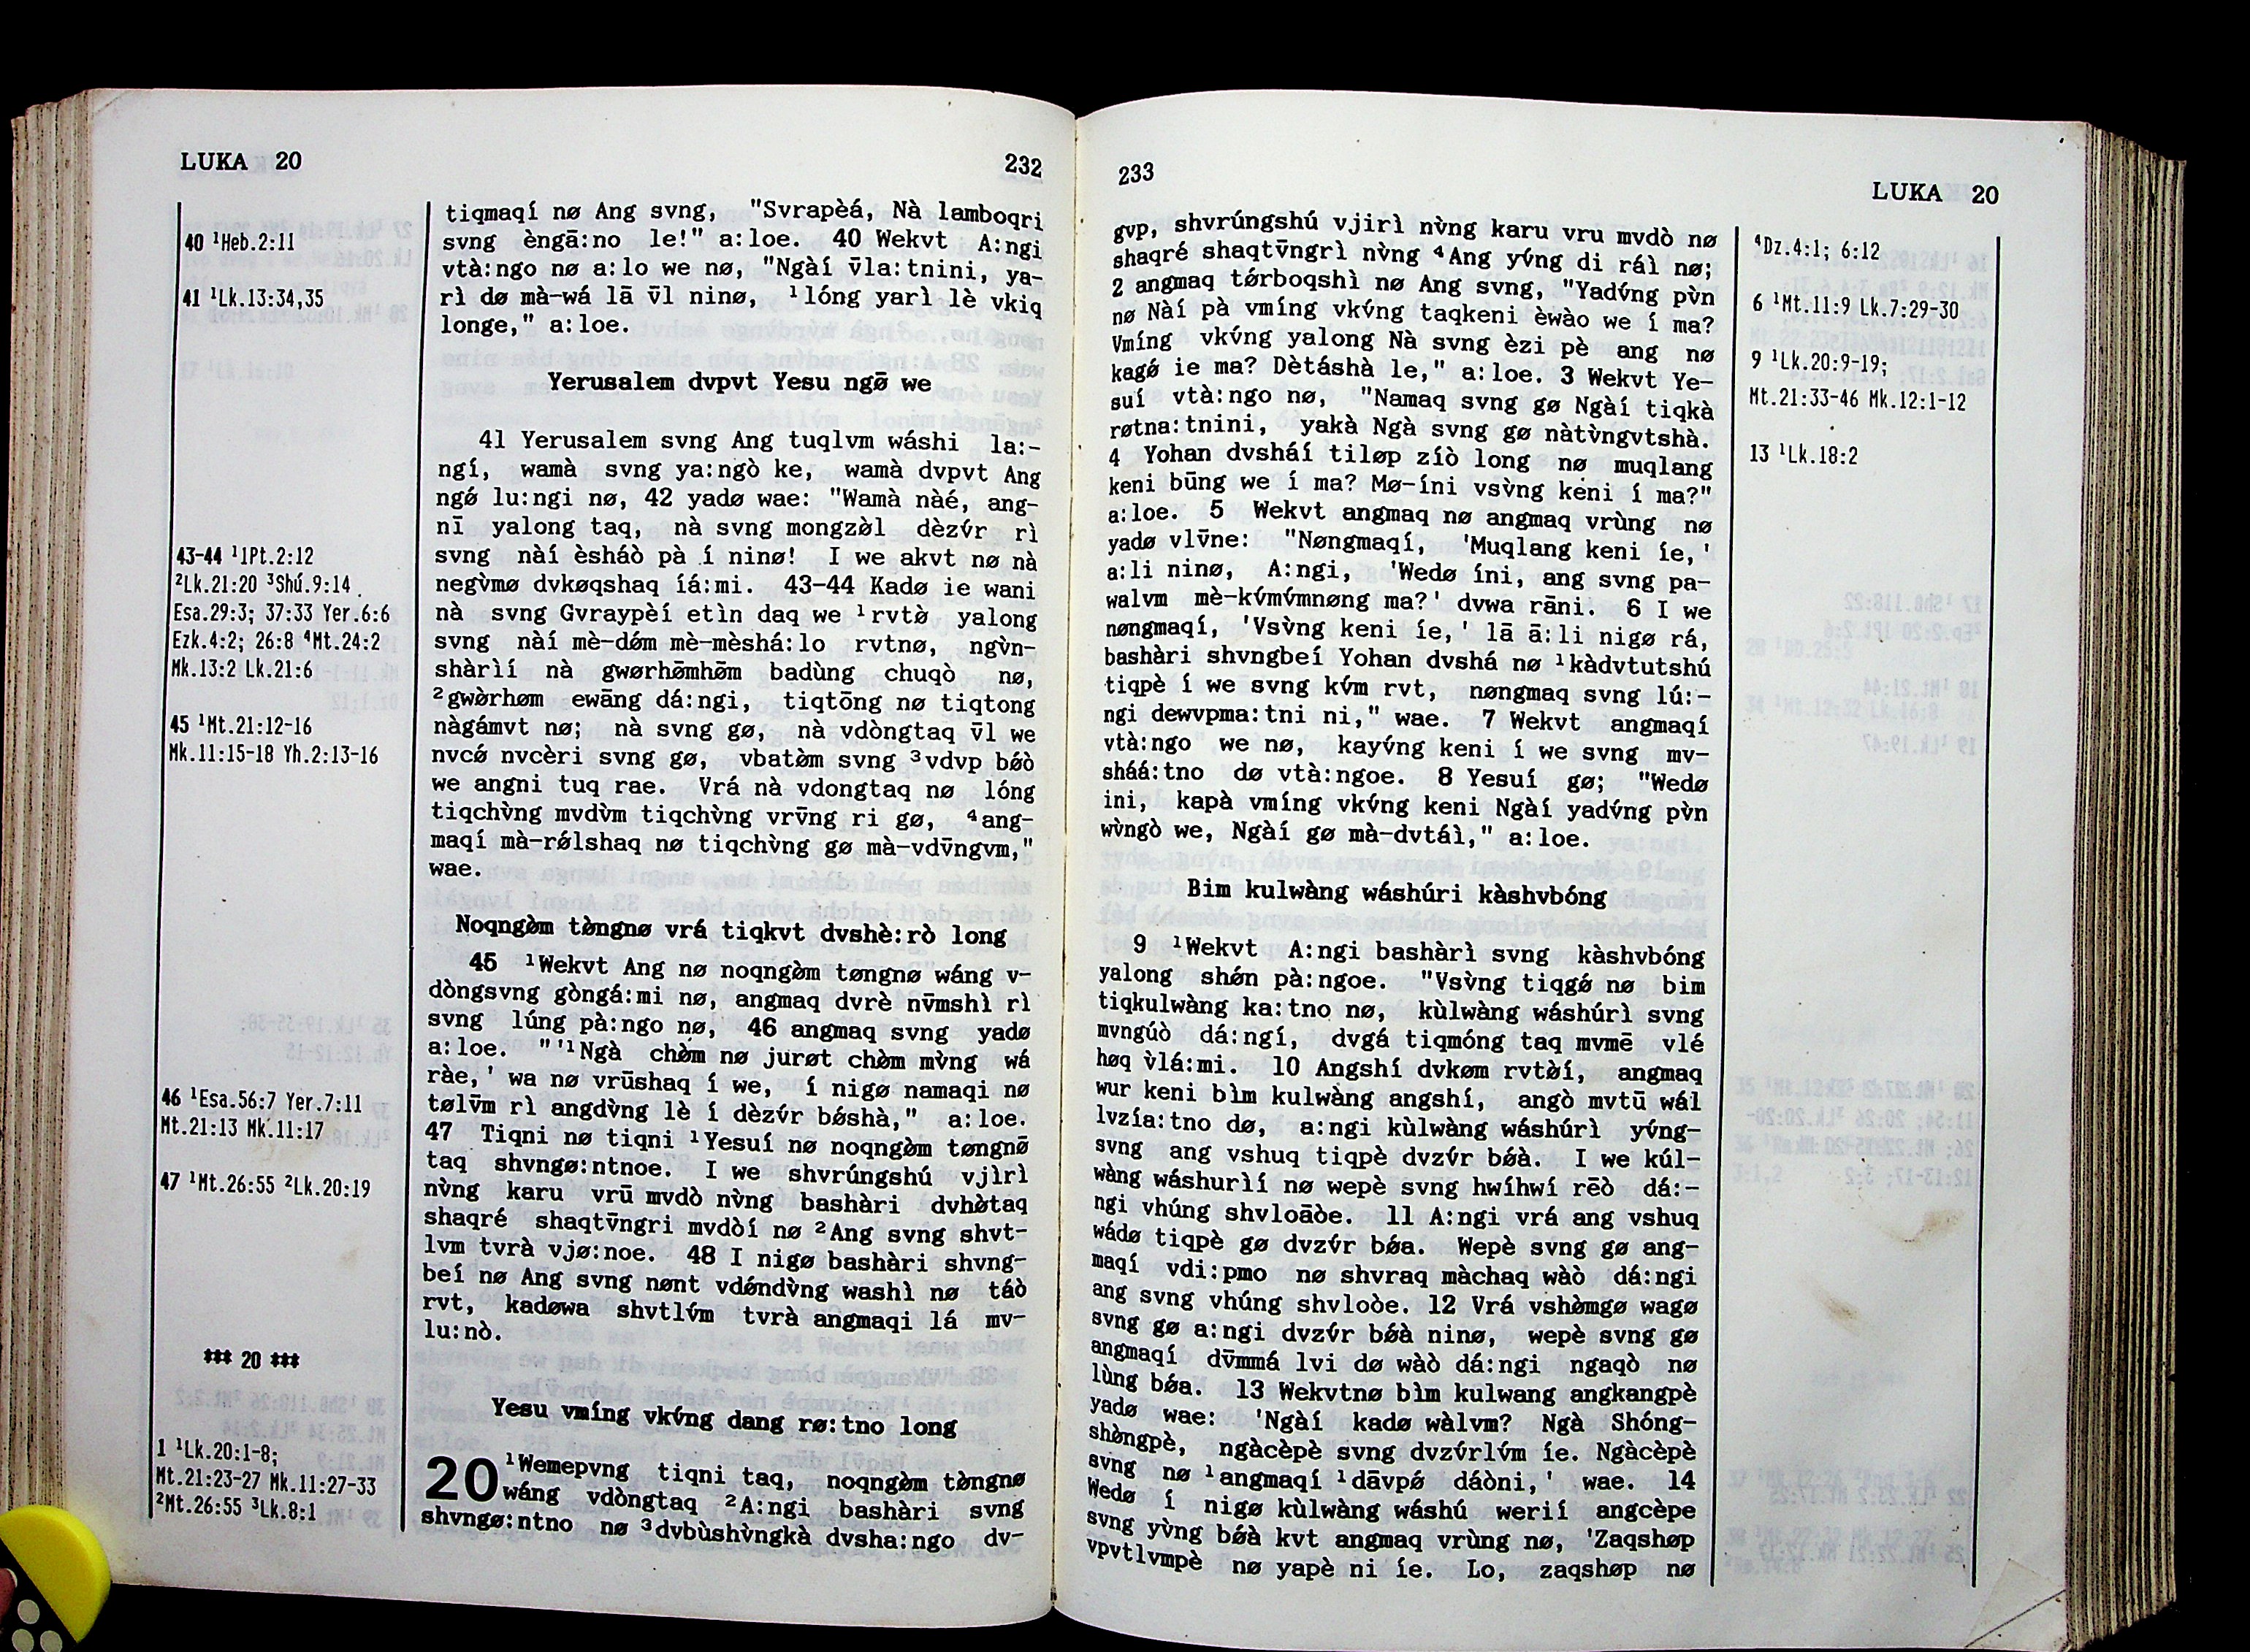 LUKA 20
232
40 ¹Heb.2:11
41 ¹Lk.13:34,35
43-44 ¹1Pt.2:12
²Lk.21:20 ³Shú.9:14
Esa.29:3; 37:33 Yer.6:6
Ezk.4:2; 26:8 ⁴Mt.24:2
Mk.13:2 Lk.21:6
45 ¹Mt.21:12-16
Mk.11:15-18 Yh.2:13-16
46 ¹Esa.56:7 Yer.7:11
Mt.21:13 Mk.11:17
47 ¹Mt.26:55 ²Lk.20:19
*** 20 ***
1 ¹Lk.20:1-8;
Mt.21:23-27 Mk.11:27-33
²Mt.26:55 ³Lk.8:1
tiqmaqí nø Ang svng, "Svrapèá, Nà lamboqri
svng èngā:no le!" a:loe. 40 Wekvt A:ngi
vtà:ngo nø a:lo we nø, "Ngàí v̄la:tnini, ya-
rì dø mà-wá lā v̄l ninø, ¹lóng yarì lè vkiq
longe," a:loe.
Yerusalem dvpvt Yesu ngø̄ we
41 Yerusalem svng Ang tuqlvm wáshi la:-
ngí, wamà svng ya:ngò ke, wamà dvpvt Ang
ngǿ lu:ngi nø, 42 yadø wae: "Wamà nàé, ang-
nī yalong taq, nà svng mongzø̀l dèzv́r rì
svng nàí èsháò pà í ninø! I we akvt nø nà
negv̀mø dvkøqshaq íá:mi. 43-44 Kadø ie wani
nà svng Gvraypèí etìn daq we ¹rvtø̀ yalong
svng nàí mè-dǿm mè-mèshá:lo rvtnø, ngv̀n-
shàrìí nà gwørhø̄mhø̄m badùng chuqò nø,
²gwø̀rhøm ewāng dá:ngi, tiqtōng nø tiqtong
nàgámvt nø; nà svng gø, nà vdòngtaq v̄l we
nvcǿ nvcèri svng gø, vbatø̀m svng ³vdvp bǿò
we angni tuq rae. Vrá nà vdongtaq nø lóng
tiqchv̀ng mvdv̀m tiqchv̀ng vrv̄ng ri gø, ⁴ang-
maqí mà-rǿlshaq nø tiqchv̀ng gø mà-vdv̄ngvm,"
wae.
Noqngø̀m tø̀ngnø vrá tiqkvt dvshè:rò long
45 ¹Wekvt Ang nø noqngø̀m tøngnø wáng v-
dòngsvng gòngá:mi nø, angmaq dvrè nv̄mshì rì
svng lúng pà:ngo nø, 46 angmaq svng yadø
a:loe. "'¹Ngà chø̀m nø jurøt chø̀m mv̀ng wá
ràe,' wa nø vrūshaq í we, í nigø namaqi nø
tølv̄m rì angdv̀ng lè í dèzv́r bǿshà," a:loe.
47 Tiqni nø tiqni ¹Yesuí nø noqngø̀m tøngnø̄
taq shvngø:ntnoe. I we shvrúngshú vjìrì
nv̀ng karu vrū mvdò nv̀ng bashàri dvhø̀taq
shaqré shaqtv̄ngri mvdòí nø ²Ang svng shvt-
lvm tvrà vjø:noe. 48 I nigø bashàri shvng-
beí nø Ang svng nønt vdǿndv̀ng washì nø táò
rvt, kadøwa shvtlv́m tvrà angmaqi lá mv-
lu:nò.
Yesu vmíng vkv́ng dang rø:tno long
20 ¹Wemepvng tiqni taq, noqngø̀m tø̀ngnø
wáng vdòngtaq ²A:ngi bashàri svng
shvngø:ntno nø ³dvbùshv̀ngkà dvsha:ngo dv-
233
LUKA 20
gvp, shvrúngshú vjirì nv̀ng karu vru mvdò nø
shaqré shaqtv̄ngrì nv̀ng ⁴Ang yv́ng di ráì nø;
2 angmaq tǿrboqshì nø Ang svng, "Yadv́ng pv̀n
nø Nàí pà vmíng vkv́ng taqkeni èwào we í ma?
Vmíng vkv́ng yalong Nà svng èzi pè ang nø
kagǿ ie ma? Dètáshà le," a:loe. 3 Wekvt Ye-
suí vtà:ngo nø, "Namaq svng gø Ngàí tiqkà
røtna:tnini, yakà Ngà svng gø nàtv̀ngvtshà.
4 Yohan dvsháí tiløp zíò long nø muqlang
keni būng we í ma? Mø-íni vsv̀ng keni í ma?"
a:loe. 5 Wekvt angmaq nø angmaq vrùng nø
yadø vlv̄ne: "Nøngmaqí, 'Muqlang keni íe,'
a:li ninø, A:ngi, 'Wedø íni, ang svng pa-
walvm mè-kv́mv́mnøng ma?' dvwa rāni. 6 I we
nøngmaqí, 'Vsv̀ng keni íe,' lā ā:li nigø rá,
bashàri shvngbeí Yohan dvshá nø ¹kàdvtutshú
tiqpè í we svng kv́m rvt, nøngmaq svng lú:-
ngi dewvpma:tni ni," wae. 7 Wekvt angmaqí
vtà:ngo we nø, kayv́ng keni í we svng mv-
sháá:tno dø vtà:ngoe. 8 Yesuí gø; "Wedø
ini, kapà vmíng vkv́ng keni Ngàí yadv́ng pv̀n
wv̀ngò we, Ngàí gø mà-dvtáì," a:loe.
Bim kulwàng wáshúri kàshvbóng
9 ¹Wekvt A:ngi bashàrì svng kàshvbóng
yalong shǿn pà:ngoe. "Vsv̀ng tiqgǿ nø bim
tiqkulwàng ka:tno nø, kùlwàng wáshúrì svng
mvngúò dá:ngí, dvgá tiqmóng taq mvmē vlé
høq v̀lá:mi. 10 Angshí dvkøm rvtø̀í, angmaq
wur keni bìm kulwàng angshí, angò mvtū wál
lvzía:tno dø, a:ngi kùlwàng wáshúrì yv́ng-
svng ang vshuq tiqpè dvzv́r bǿà. I we kúl-
wàng wáshurìí nø wepè svng hwíhwí rēò dá:-
ngi vhúng shvloāòe. 11 A:ngi vrá ang vshuq
wádø tiqpè gø dvzv́r bǿa. Wepè svng gø ang-
maqí vdi:pmo nø shvraq màchaq wàò dá:ngi
ang svng vhúng shvloòe. 12 Vrá vshø̀mgø wagø
svng gø a:ngi dvzv́r bǿà ninø, wepè svng gø
angmaqí dv̄mmá lvi dø wàò dá:ngi ngaqò nø
lùng bǿa. 13 Wekvtnø bìm kulwang angkangpè
yadø wae: 'Ngàí kadø wàlvm? Ngà Shóng-
shø̀ngpè, ngàcèpè svng dvzv́rlv́m íe. Ngàcèpè
svng nø ¹angmaqí ¹dāvpǿ dáòni,' wae. 14
Wedø í nigø kùlwàng wáshú weríí angcèpe
svng yv̀ng bǿà kvt angmaq vrùng nø, 'Zaqshøp
vpvtlvmpè nø yapè ni íe. Lo, zaqshøp nø
⁴Dz.4:1; 6:12
6 ¹Mt.11:9 Lk.7:29-30
9 ¹Lk.20:9-19;
Mt.21:33-46 Mk.12:1-12
13 ¹Lk.18:2